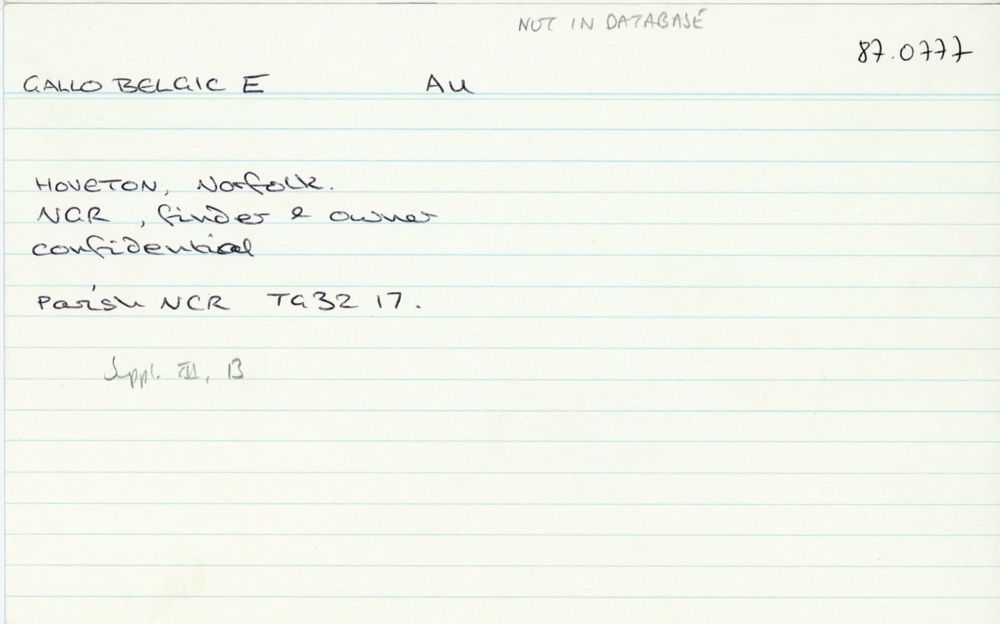 NOT IN DATABASE
87.0777
GALLO BELGIC E Au
HOVETON, Norfolk.
NGR , finder & owner
confidential
Parish NGR TG 32 17.
Suppl. III, B